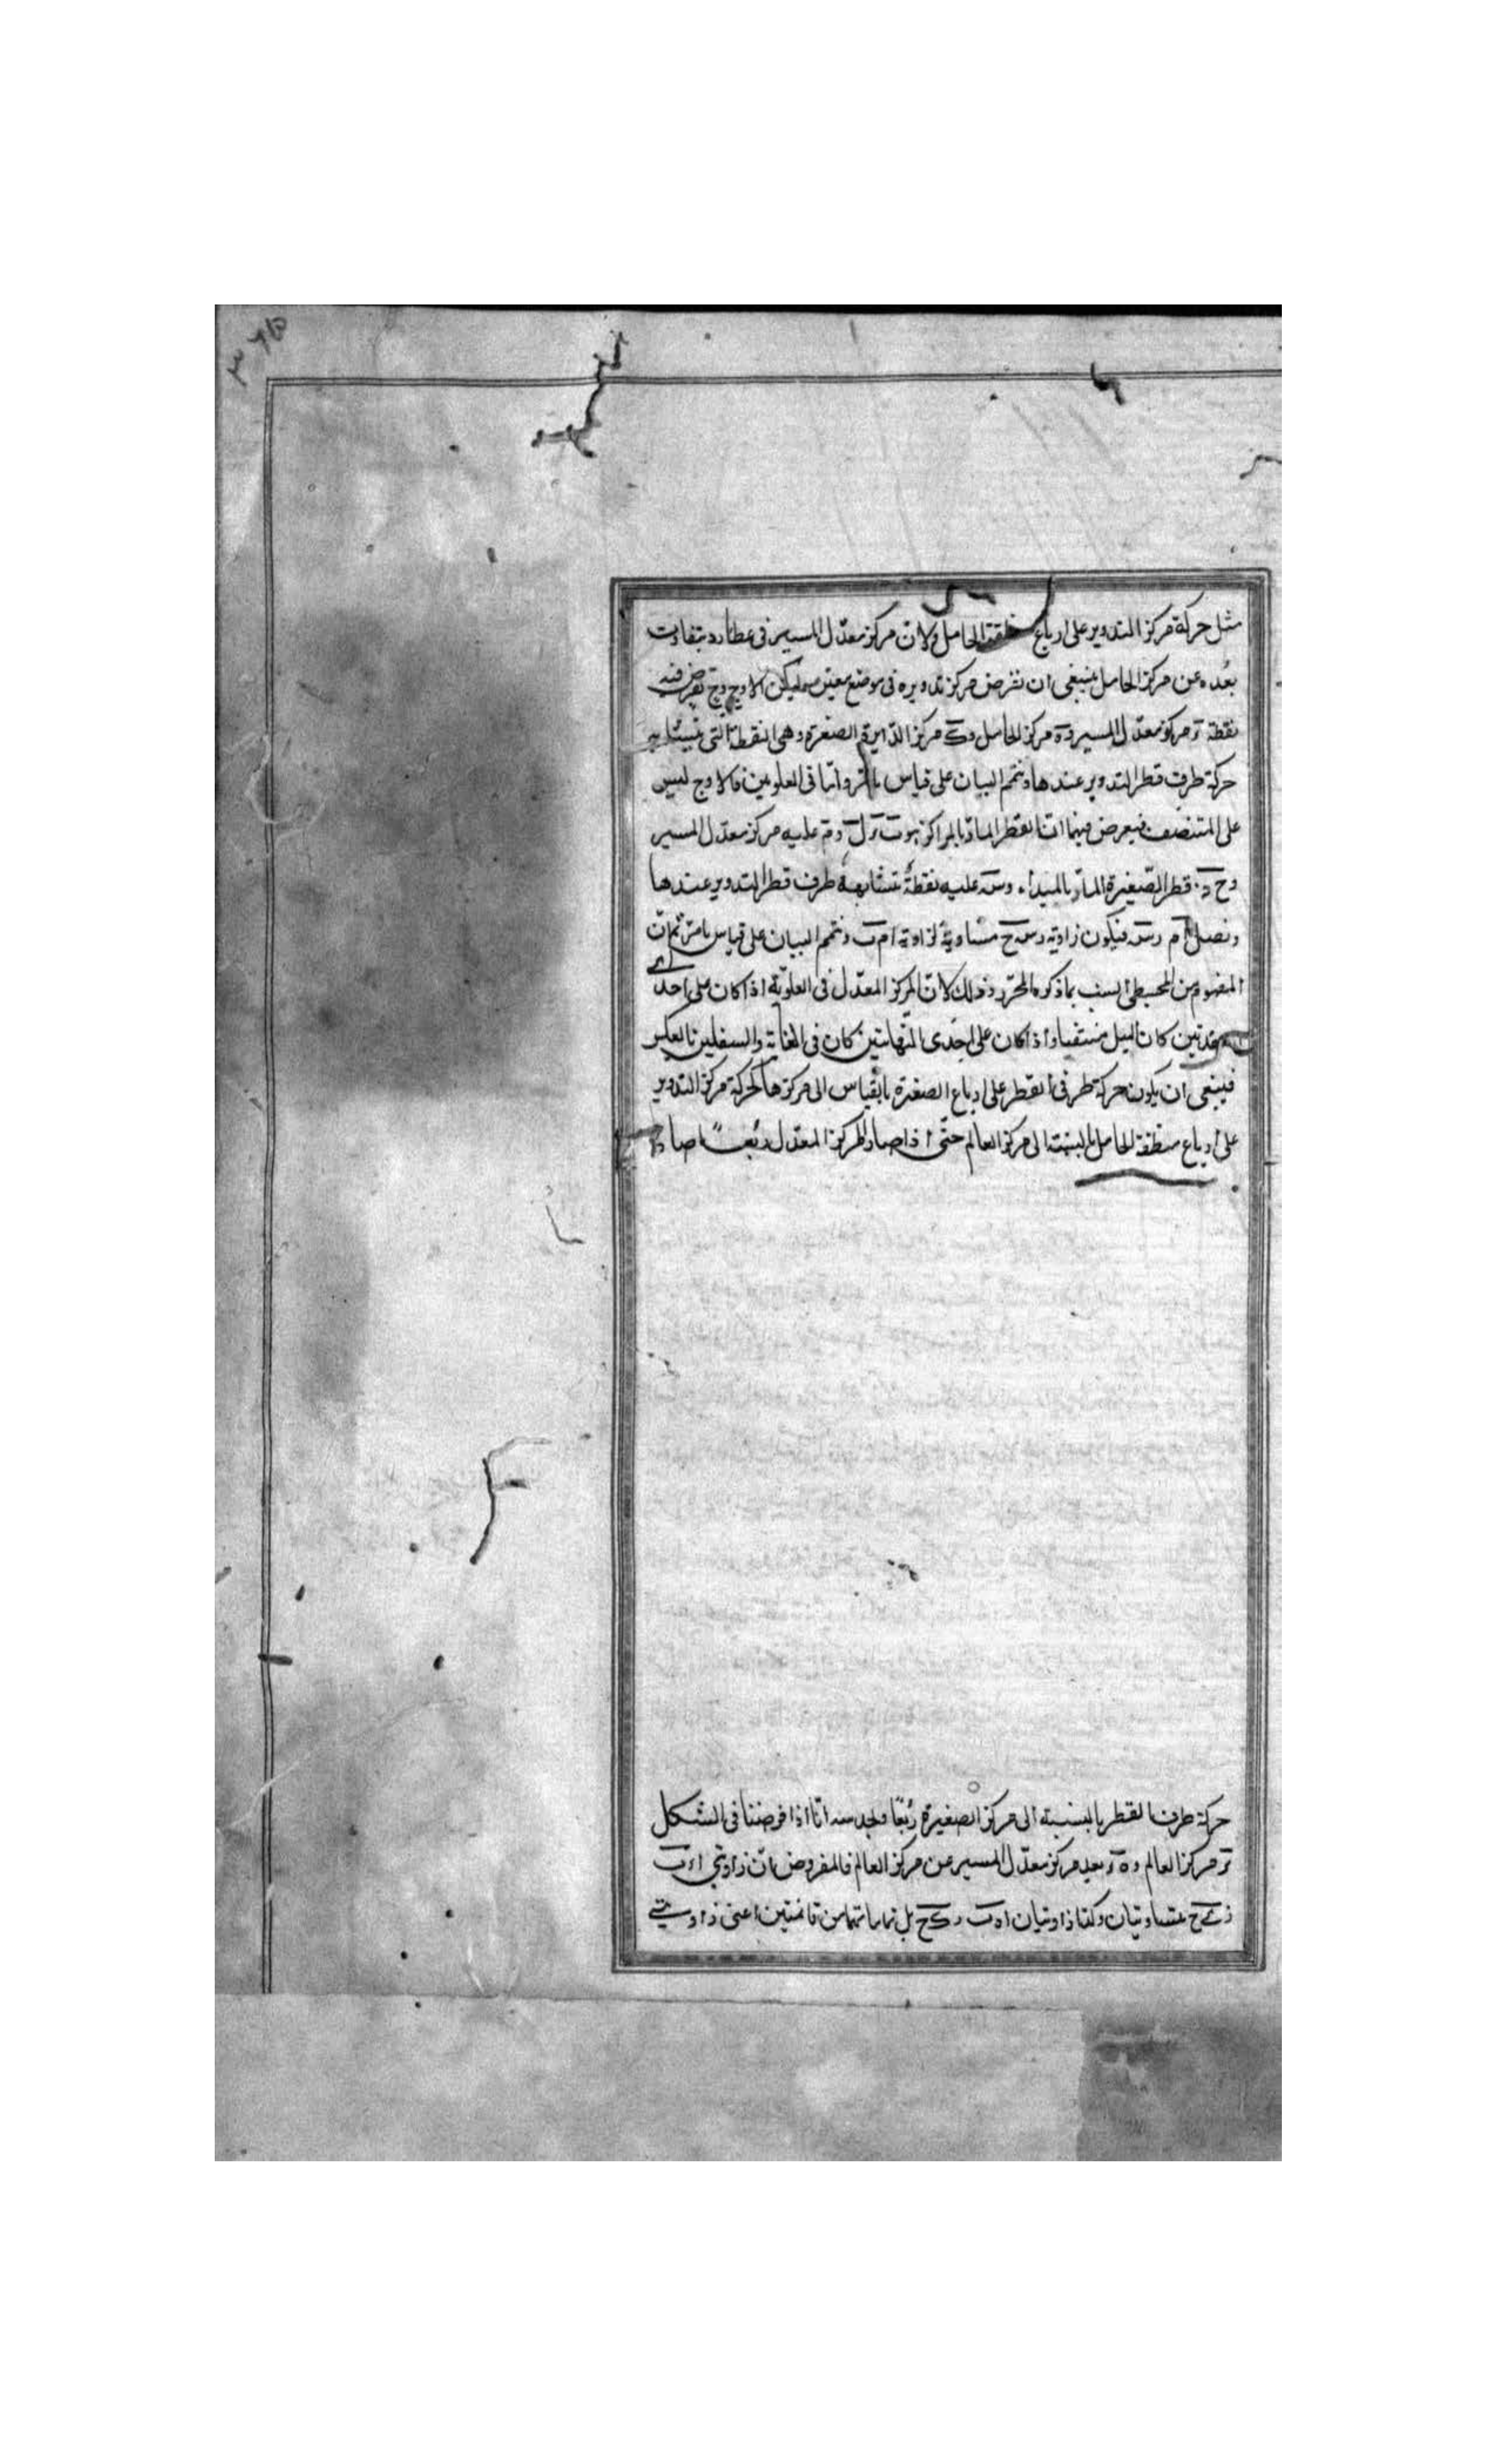 ٣٦٥
مثل حركة مركز التدوير على ارباع منطقة الحامل ولان مركز معدل المسير فى عطارد يتفاوت
بعده عن مركز الحامل ينبغى ان نفرض مركز تدويره فى موضع معين وليكن الاوج وح نفرض فيه
نقطة مركز معدل المسير و ه مركز الحامل و ك مركز الدايرة الصغيرة وهى النقطة التى يتشابه
حركة طرف قطر التدوير عندها ونتمم البيان على قياس ما مر واما فى العلويين فالاوج ليس
على المنتصف فيعرض فيهما انا القطر المار بالمراكز عليه مركز معدل المسير
و ح د قطر الصغيرة المار بالمبدأ و س عليه نقطة تتشابه طرف قطر التدوير عندها
ونصل ام رس فيكون زاوية رس ح مساوية لزاوية ام ب ونتمم البيان على قياس ما مر ثم ان
المفهوم من المجسطى ليس بما ذكره المحرر وذلك لان المركز المعدل فى العلوية اذا كان على احدى
العقدتين كان الميل منتفيا واذا كان على احدى النهايتين كان فى الغاية والسفليين بالعكس
فينبغى ان يكون حركة طرفى القطر على ارباع الصغيرة بالقياس الى مركزها كحركة مركز التدوير
على ارباع منطقة الحامل بالنسبة الى مركز العالم حتى اذا صار المركز المعدل ربعا صار
حركة طرف القطر بالنسبة الى مركز الصغيرة ربعا انا اذا فرضنا فى الشكل
مركز العالم و ه بعد مركز معدل المسير عن مركز العالم فالمفروض ان زاويتى
متساويتان وكذا زاويتان اه ب رك ح بل تماماتهما من قائمتين اعنى زاويتى